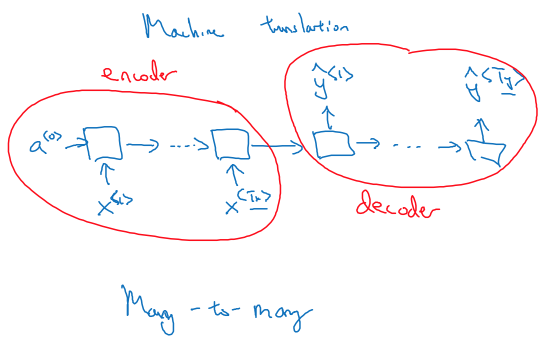 Machine translation
encoder
ŷ<1> ŷ<Ty>
a<0>
x<1> x<Tx>
decoder
Many-to-many